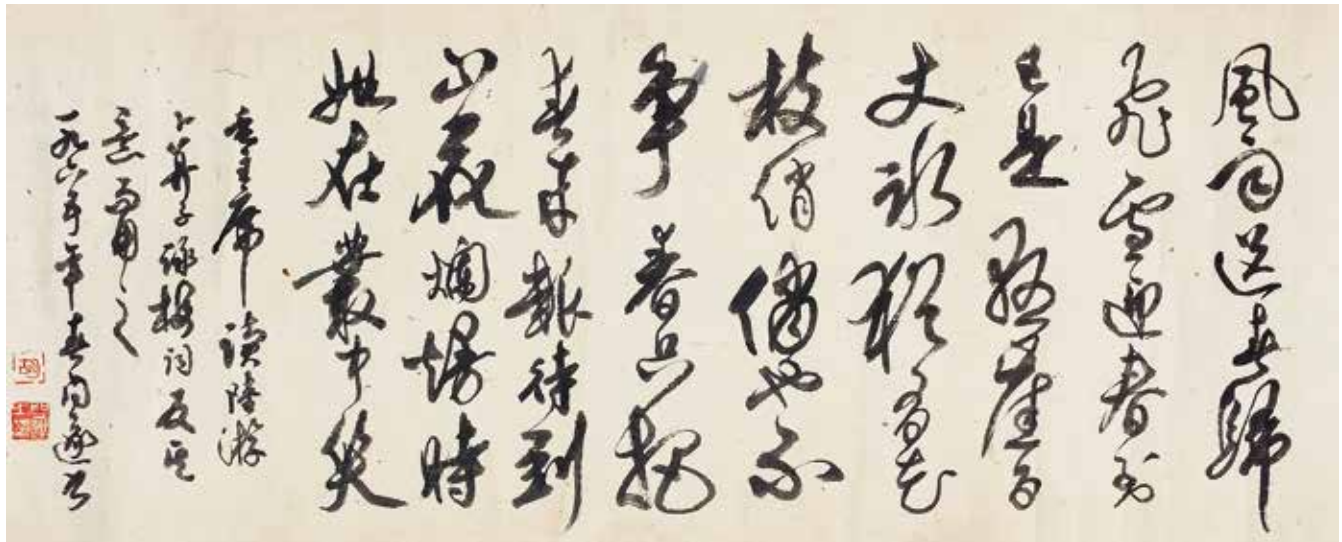 風雨送春歸
飛雪迎春到
已是懸崖百
丈冰猶有花
枝俏俏也不
爭春只把
春來報待到
山花爛熳時
她在叢中笑
毛主席讀陸游
卜算子詠梅詞反其
意而用之
一九六年春問遂書
胡